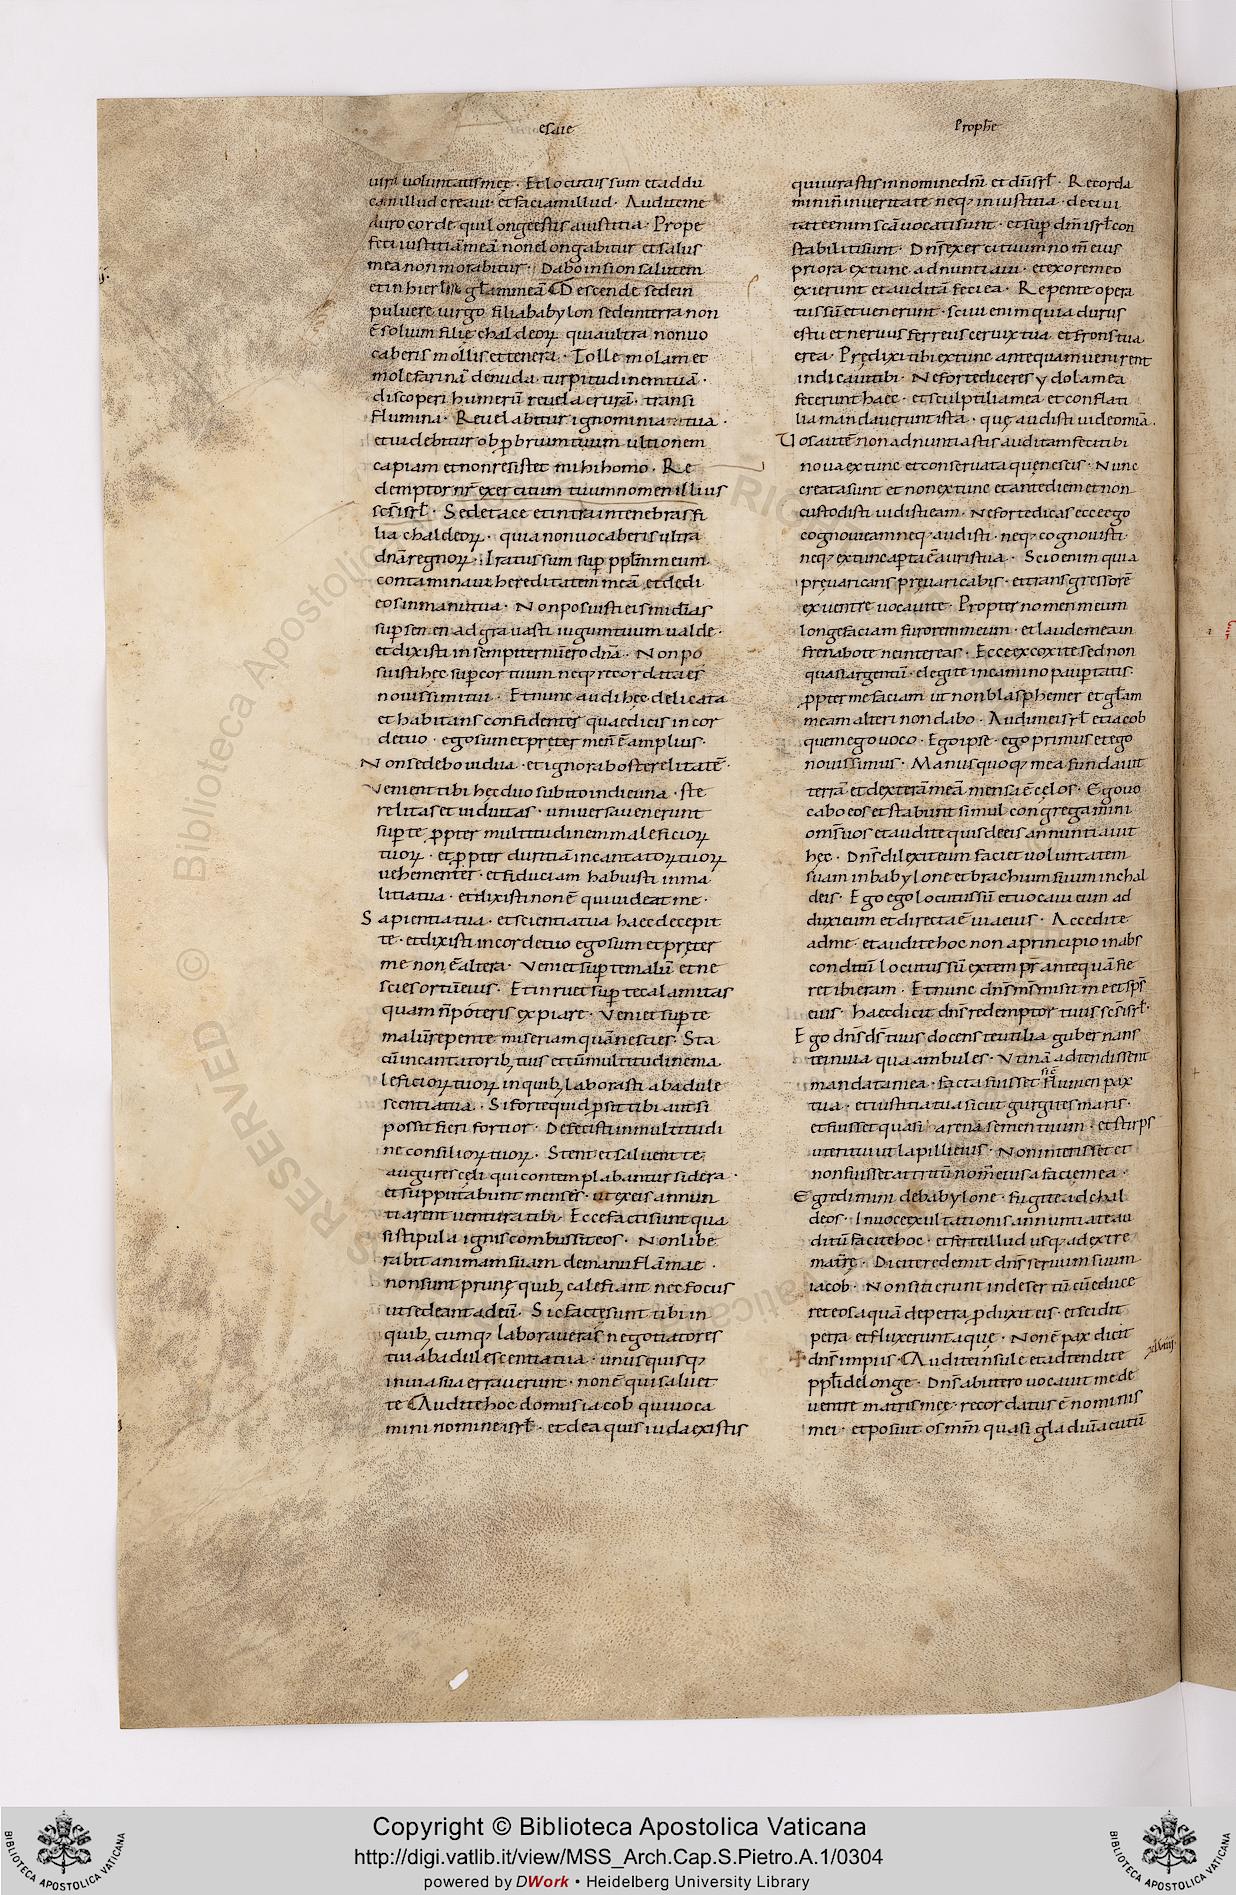 esaie
Prophe
uiri uoluntatis meę · Et locutus sum et addu
cam illud creaui · et faciam illud · Audite me
duro corde qui longe estis a iustitia · Prope
feci iustitiā meā non elongabitur et salus
mea non morabitur · Dabo in sion salutem
et in hierłm głam meā Descende sede in
puluere uirgo filia babylon sede in terra non
ē solium filię chaldeoꝝ quia ultra non uo
caberis mollis et tenera · Tolle molam et
mole farinā denuda turpitudinem tuā ·
discoperi humerū reuela crurā · transi
flumina · Reuelabitur ignominia tua ·
et uidebitur obꝓbrium tuum ultionem
capiam et non resistet mihi homo · Re
demptor nr̄ exercituum nomen illius
scs isrł · Sede tace et intra in tenebras fi
lia chaldeoꝝ · quia non uocaberis ultra
dnā regnoꝝ · Iratus sum sup̱ pplm̄ meum
contaminaui hereditatem meā et dedi
eos in manu tua · Non posuisti eis mīdias
sup̱ senen adgrauasti iugum tuum ualde ·
et dixisti in sempiternū ero dnā · Non po
suisti hęc sup̱ cor tuum neq; recordata es
nouissimi tui · Et nunc audi hęc delicata
et habitans confidenter quae dicis in cor
de tuo · ego sum et preter mē n̄ ē amplius ·
Non sedebo uidua · et ignorabo sterelitatē ·
Venient tibi hęc duo subito in die una · ste
relitas et uiduitas · uniuersa uenerunt
sup̱ te ꝓpter multitudinem maleficioꝝ
tuoꝝ · et ꝓpter duritiā incantatoꝝ tuoꝝ
uehementer · et fiduciam habuisti in ma
litia tua · et dixisti non ē qui uideat me ·
Sapientia tua · et scientia tua haec decepit
te · et dixisti in corde tuo ego sum et pręter
me non ē altera · Veniet sup̱ te malū et ne
scies ortū eius · Et inruet sup̱ te calamitas
quam n̄ poteris expiare · Veniet sup̱ te
malū repente miseriam quā nescies · Sta
cū incantatorib; tuis et cū multitudine ma
leficioꝝ tuoꝝ in quib; laborasti ab adule
scentia tua · Si forte quid ꝓsit tibi aut si
possit fieri fortior · Defecisti in multitudi
ne consilioꝝ tuoꝝ · Stent et saluent te
augures cęli qui contemplabantur sidera ·
et supputabant menses · ut ex eis annun
tiarent uentura tibi · Ecce facti sunt qua
si stipula ignis combussit eos · Non libe
rabit animam suam de manu flāmae ·
non sunt prunę quib; calefiant nec focus
ut sedeant ad eū · Sic facte sunt tibi in
quib; cumq; laboraueras negotiatores
tui ab adulescentia tua · unusquisq;
in uia sua errauerunt · non ē qui saluet
te Audite hoc domus iacob qui uoca
mini nomine isrł · et de aquis iuda existis
qui iurastis in nomine dnī et dī isrł · Recorda
mini n̄ in ueritate neq; in iustitia · de ciui
tate enim scā uocati sunt · et sup̱ dm̄ isrł con
stabiliti sunt · Dns̄ exercituum nom̄ eius
priora ex tunc adnuntiaui · et ex ore meo
exierunt et auditā feci ea · Repente opera
tus sū et uenerunt · sciui enim quia durus
es tu et neruus ferreus ceruix tua · et frons tua
erea · Prędixi tibi ex tunc antequam uenirent
indicaui tibi · Ne forte diceres ydola mea
fecerunt haec · et sculptilia mea et conflati
lia mandauerunt ista · quę audisti uide omīa ·
Vos autē non adnuntiastis audita feci tibi
noua ex tunc et conseruata quę nescis · Nunc
creata sunt et non ex tunc et ante diem et non
custodisti uidisti eam · Ne forte dicas ecce ego
cognoui eam neq; audisti · neq; cognouisti ·
neq; ex tunc ap̱ta ē auris tua · Scio enim quia
pręuaricans pręuaricabis · et transgressorē
ex uentre uocaui te · Propter nomen meum
longe faciam furorem meum · et laude mea in
frenabo te ne intereas · Ecce excoxi te sed non
quasi argentū · elegi te in camino paup̱tatis ·
ꝓpter me faciam ut non blasphemer et głam
meam alteri non dabo · Audi me isrł et iacob
quem ego uoco · Ego ipse · ego primus et ego
nouissimus · Manus quoq; mea fundauit
terrā et dextera mea mensa ē cęlos · Ego uo
cabo eos et stabunt simul congregamini
om̄s uos et audite quis de eis annuntiauit
hęc · Dns̄ dilexit eum faciet uoluntatem
suam in babylone et brachium suum in chal
deis · Ego ego locutus sū et uocaui eum ad
duxi eum et directa ē uia eius · Accedite
ad me · et audite hoc non a principio in abs
condito locutus sū ex tempr̄ antequā fie
ret ibi eram · Et nunc dns̄ ds̄ misit me et sps̄
eius · haec dicit dns̄ redemptor tuus scs̄ isrł ·
Ego dns̄ ds̄ tuus docens te utilia gubernans
te in uia qua ambules · Vtinā adtendissent
mandata mea · facta fuisset sic̄ flumen pax
tua · et iustitia tua sicut gurgites maris ·
et fuisset quasi arena semen tuum · et stirps
uteri tui ut lapilli eius · Non interisset et
non fuisset attritū nom̄ eius a facie mea ·
Egredimini de babylone · fugite a chal
deos · In uoce exultationis annuntiate au
ditū facite hoc · et ferte illud usq; ad extre
ma tr̄ę · Dicite redemit dns̄ seruum suum
iacob · Non sitierunt in desertū cū educe
ret eos aquā de petra ꝓduxit eis · et scidit
petra et fluxerunt aquę · Non ē pax dicit
dns̄ impiis · Audite insule et adtendite
ppłi de longe · Dns̄ ab utero uocauit me de
uentre matris meę · recordatus ē nominis
mei · et posuit os mm̄ quasi gladium acutū
xlviiij ·
Copyright © Biblioteca Apostolica Vaticana
http://digi.vatlib.it/view/MSS_Arch.Cap.S.Pietro.A.1/0304
powered by DWork • Heidelberg University Library
BIBLIOTECA APOSTOLICA VATICANA
BIBLIOTECA APOSTOLICA VATICANA